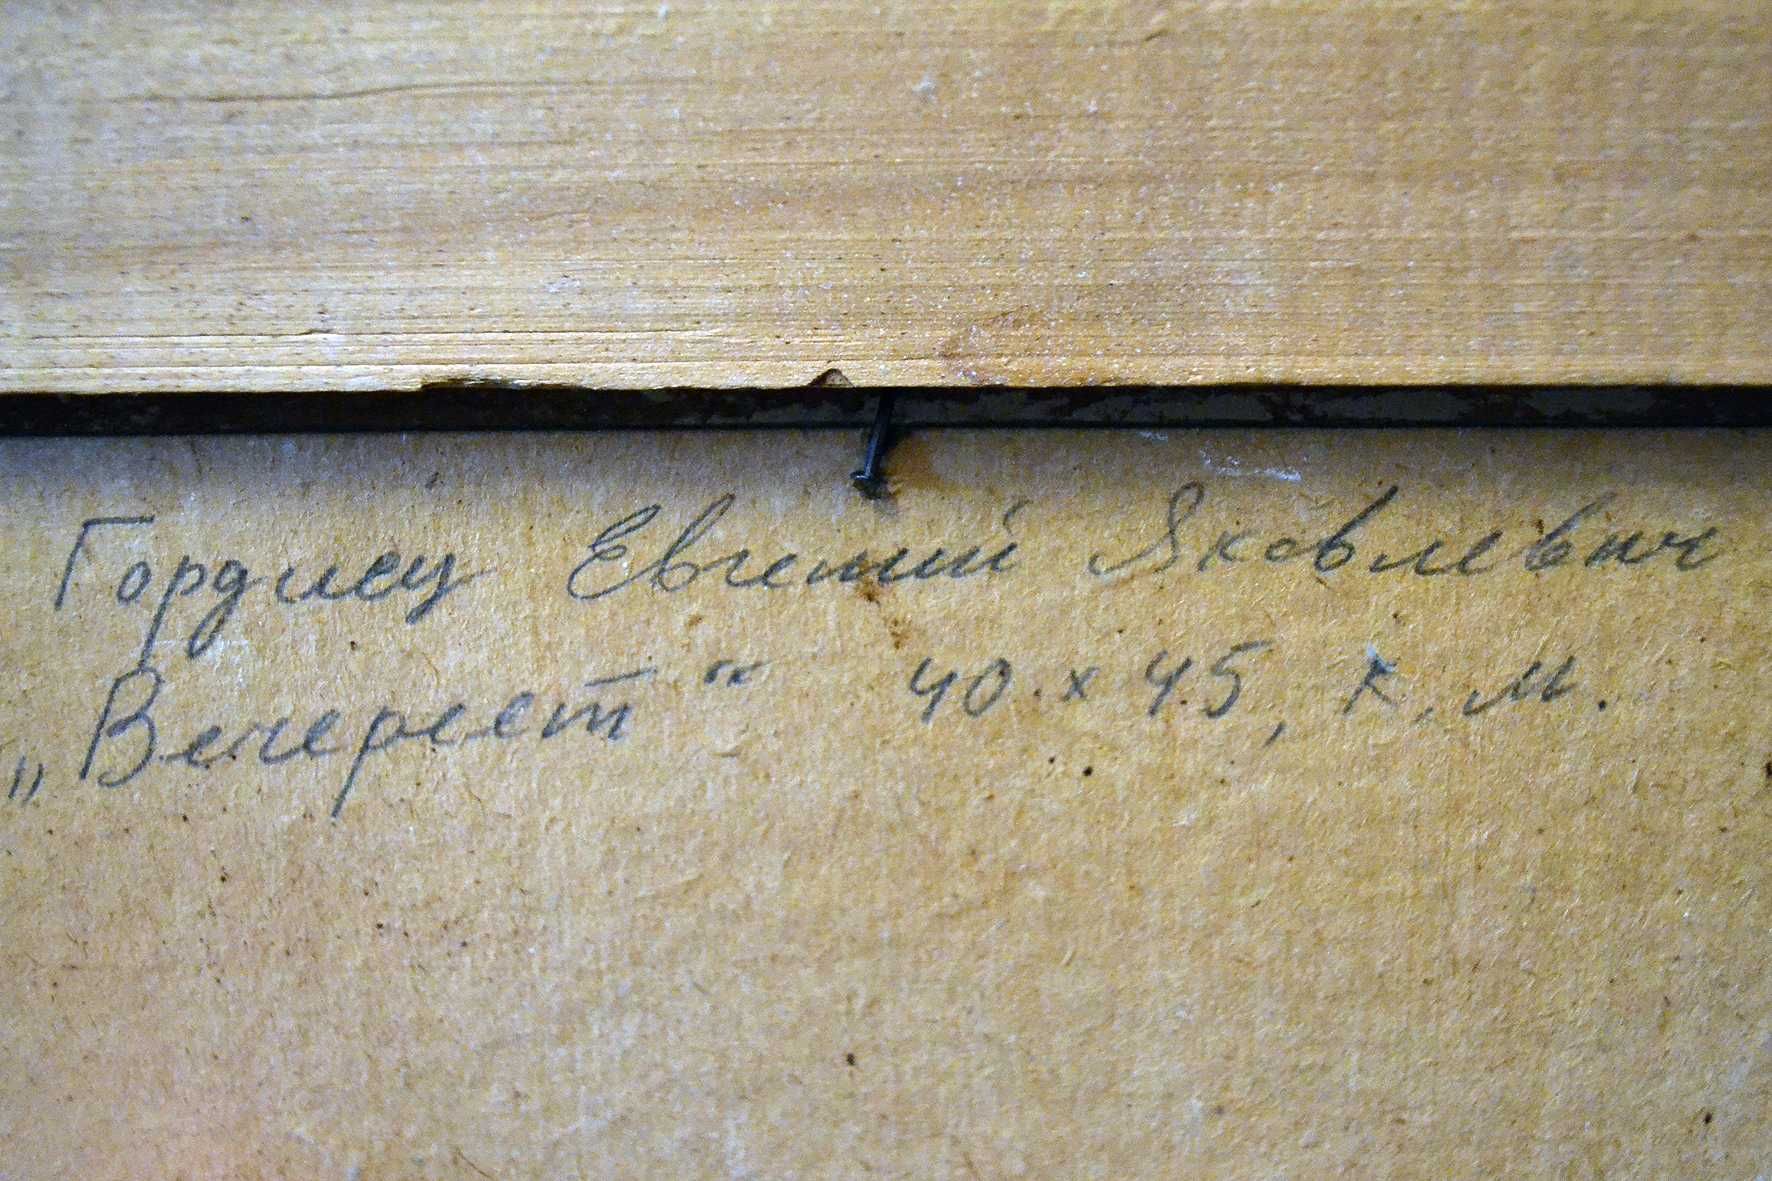 Гордиец Евгений Яковлевич
„Вечереет“ 40 x 45, к, м.